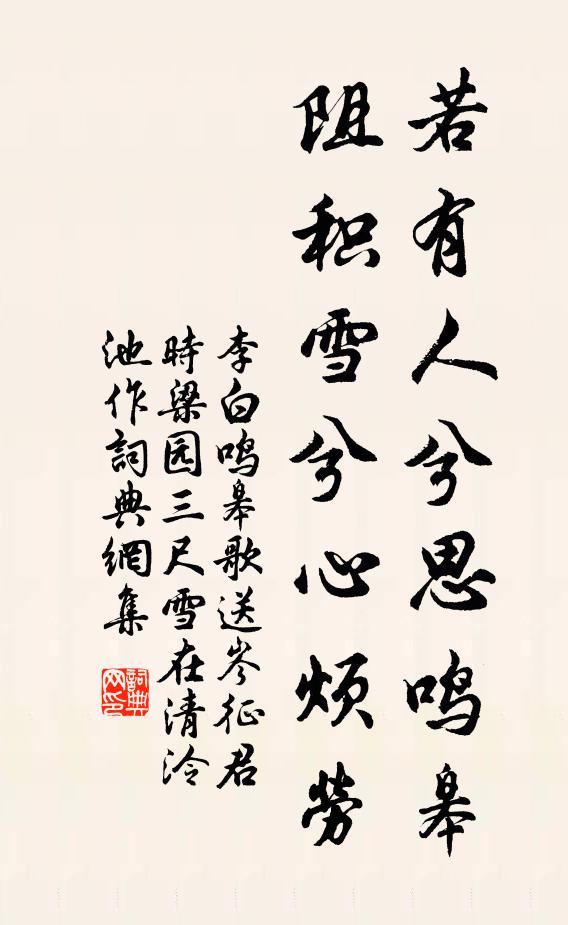 若有人兮思鸣皋
阻积雪兮心烦劳
李白鸣皋歌送岑征君
時梁园三尺雪在清泠
池作詞典網集
詞典网印